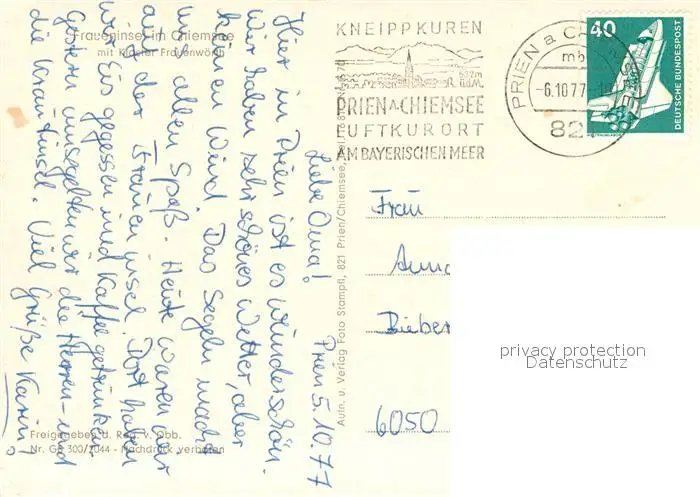 Fraueninsel im Chiemsee
mit Kloster Frauenwörth
KNEIPPKUREN
532m
ü.d.M.
PRIEN A. CHIEMSEE
LUFTKURORT
AM BAYERISCHEN MEER
PRIEN a CHIEMSEE
mb
-6.10.77-
82
40
DEUTSCHE BUNDESPOST
Prien 5.10.77
Liebe Oma!
Hier in Prien ist es wunderschön.
Wir haben sehr schönes Wetter, aber
keinen Wind. Das Segeln macht
uns allen Spaß. Heute waren wir
auf der Fraueninsel. Dort haben
wir Eis gegessen und Kaffee getrunken.
Gestern umsegelten wir die Herren- und
die Krautinsel. Viel Grüße Karin!
Aufn. u. Verlag Foto Stampfl, 821 Prien/Chiemsee,
Freigegeben d. Reg. v. Obb.
Nr. GS 300/7044 - Nachdruck verboten
Frau
Anna
Bieber
6050
privacy protection
Datenschutz